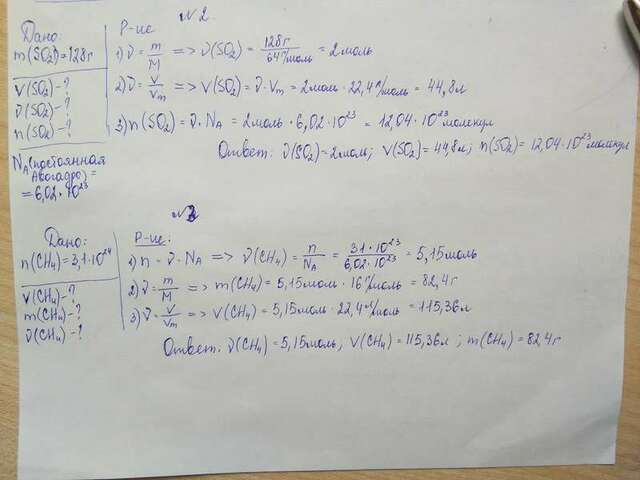 №2
Дано:
m(SO₂)=128г
V(SO₂)-?
ν(SO₂)-?
n(SO₂)-?
Nᴀ(постоянная
Авогадро)=
=6,02·10²³
Р-ие
1) ν=m/M => ν(SO₂)=128г/64г/моль=2моль
2) ν=V/Vm => V(SO₂)=ν·Vm=2моль·22,4л/моль=44,8л
3) n(SO₂)=ν·Nᴀ=2моль·6,02·10²³=12,04·10²³молекул
Ответ: ν(SO₂)=2моль; V(SO₂)=44,8л; n(SO₂)=12,04·10²³молекул
№3
Дано:
n(CH₄)=3,1·10²⁴
V(CH₄)-?
m(CH₄)-?
ν(CH₄)-?
Р-ие:
1) n=ν·Nᴀ => ν(CH₄)=n/Nᴀ=31·10²³/6,02·10²³=5,15моль
2) ν=m/M => m(CH₄)=5,15моль·16г/моль=82,4г
3) ν=V/Vm => V(CH₄)=5,15моль·22,4л/моль=115,36л
Ответ: ν(CH₄)=5,15моль, V(CH₄)=115,36л; m(CH₄)=82,4г